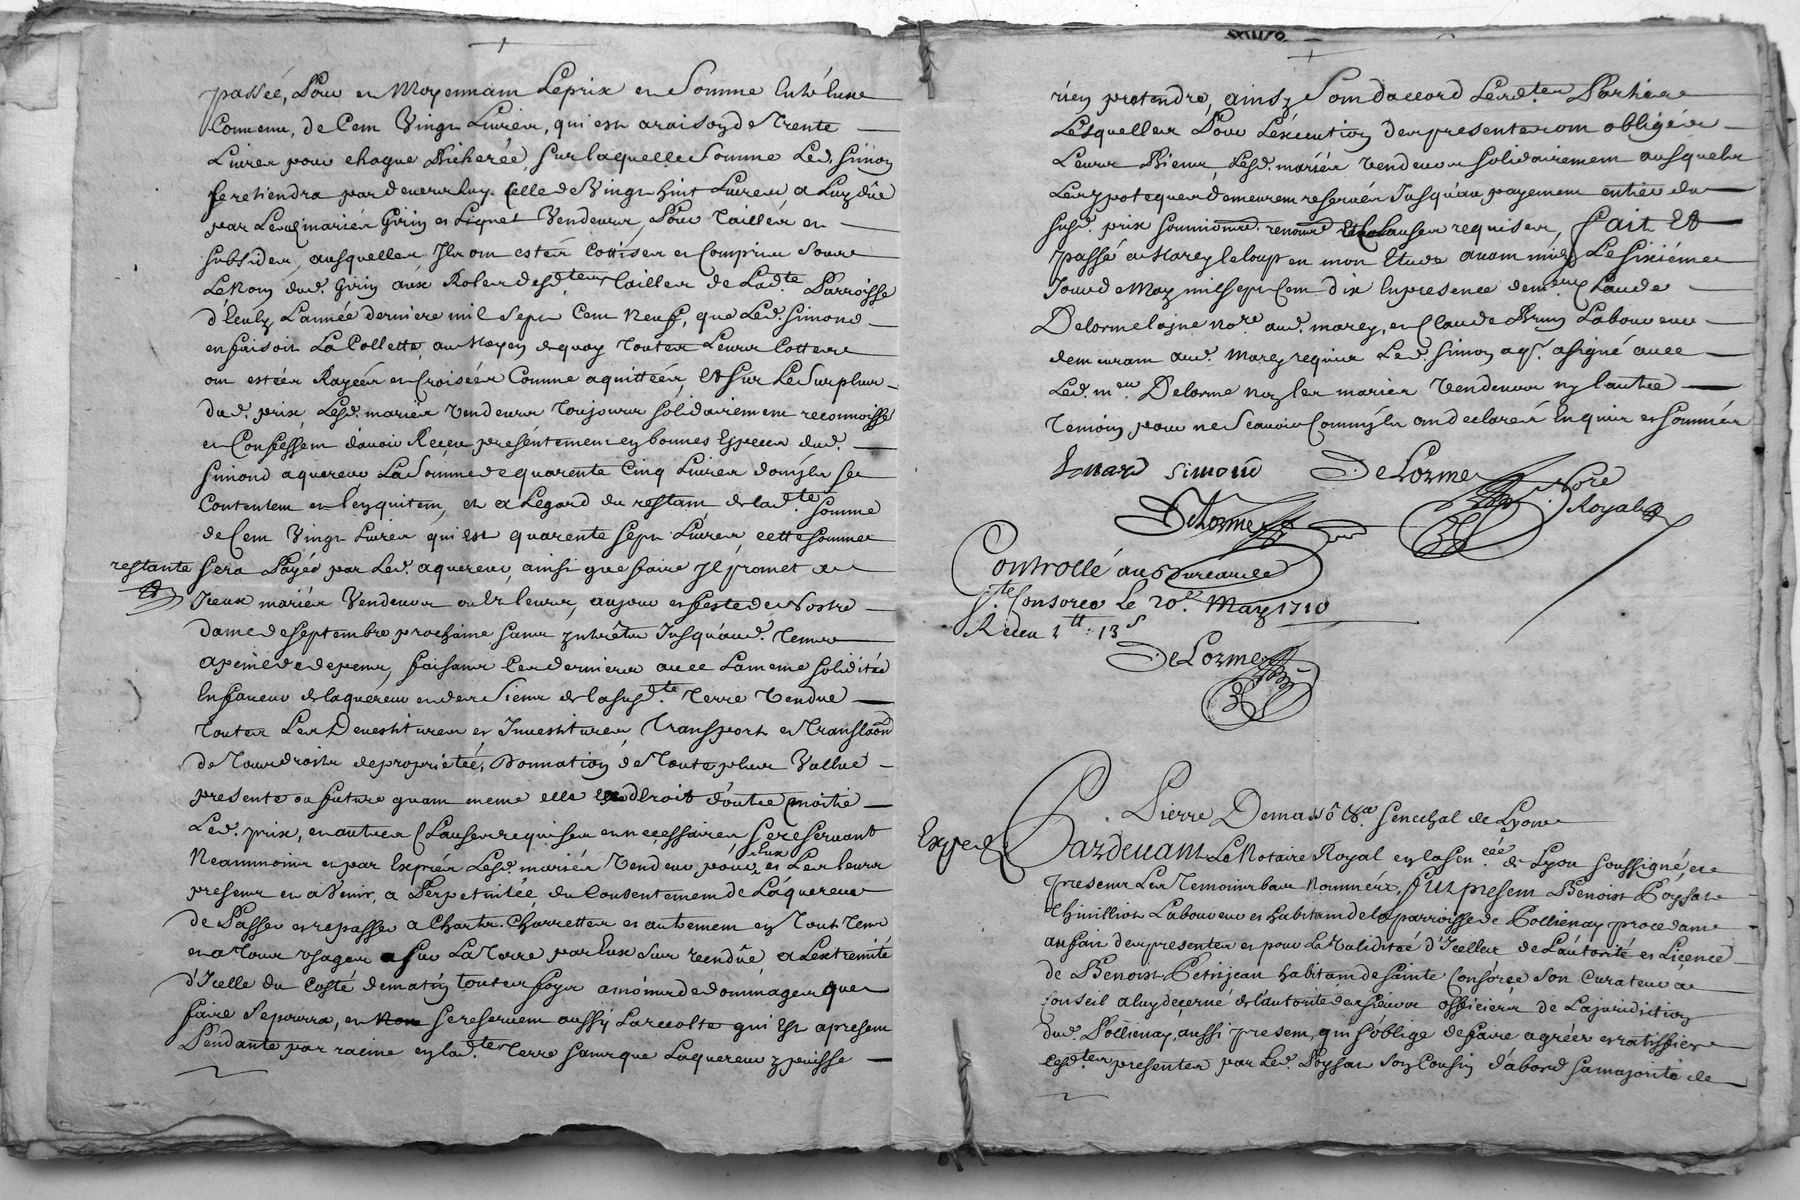 passée, Pour et Moyennant Le prix et Somme Entre Eux
Convenu, de Cent Vingt Livres, qui est a raison de Trente
Livres pour chaque Bicherée, sur laquelle Somme Led. Simon
se retiendra par devers luy celle de Vingt huit Livres a Luy dûe
par Lesd. mariés Girin et Vendeurs, Pour Tailles et
subsides, ausquelles Ils ont estés cottisés et Compris soubs
Le Nom dud. Girin aux Roles desd.tes Tailles de Lad.te Parroisse
L'année derniere mil Sept Cent Neuf, que Led. Simond
en faisoit La Collette, au Moyen de quoy Toutes Leurs Cottes
ont estées Rayées et Croisées Comme aquittées, Et sur Le Surplus
dud. prix Lesd. mariés Vendeurs Toujours solidairement reconnoisse
et Confessent d'avoir Reçeu présentement en bonnes Especes dud.
Simond aquereur La Somme de quarente Cinq Livres dont ils se
Contentent et l'en quittent, et a L'egard du restant de lad.te somme
de Cent Vingt Livres qui Est quarente sept Livres cette somme
restante sera Payée par Led. aquereur, ainsi que faire Il promet a
Iceux mariés Vendeurs ou es leurs, au jour et feste de Nostre
dame de septembre prochaine sans interêts Jusqu'aud. Tems
a peine de depens, faisants Ces derniers avec La meme solidité
En faveur de laquereur et des Siens de la susd.te Terre Vendue
Toutes Les Devestitures et Investitures Transport et
de Tous droits de proprieté, Donnation de Toute plus Vallue
presente ou future quant meme elle d'outre moitié
Led. prix, et autres Clauses requises et necessaires se reservant
Neammoins et par Exprés Lesd. mariés Vendeurs pour Eux et Les leurs
presents et a Venir, a Perpetuitée, du Consentement de Laquereur
de Passer et repasser a Chars Charrettes et autrement en Tout Tems
et a Tous Usages sur La Terre par Eux sus vendûe a Lextremité
d'Icelle du Costé de matin toutes foys a moins de dommages que
faire se pourra, et se reservent aussy La recolte qui Est a present
Pendante par racine en lad.te Terre sans que Laquereur y puisse
rien pretendre, ainsy Sont d'accord Lesd.tes Parties
Lesquelles Pour L'exécution des presentes ont obligées
Leurs Biens, Lesd. mariés Vendeurs solidairement ausquels
Les ypoteques demeurent reservées Jusqu'au payement entier du
susd. prix renoncé Et Clauses requises, Fait Et
passé a Marcy le loup en mon Etude avant midy Le sixiéme
Jour de May mil sept Cent dix En presence de m.e Claude
Delorme laine no.re aud. marcy, et Claude Laboureur
demeurant aud. Marcy requis Led. Simon aq.r a signé avec
Led. m.e Delorme non les mariés Vendeurs ny lautre
Temoin pour ne Scavoir Comm'ils ont declarés Enquis et sommés
Simond DeLorme
DeLorme Nore
Royal
Controllé au Bureau de
S.te Consorce Le 20.e May 1710
Receu 1tt : 13s
DeLorme
Pierre Demasso Senechal de Lyon
Expedé Pardevant Le Notaire Royal en la Sen.cée de Lyon soussigné, et
presents Les Temoins bas Nommés, fut present Benoist Poysat
Thivillion Laboureur et habitant de la parroisse de Pollienay procedant
au fait des presentes et pour La Validité d'Icelles de L'autorité et Licence
de Benoist Petrijean habitant de Sainte Consorce Son Curateur
Conseil a luy decerné de l'autorité des sieurs officiers de La juridiction
dud. Pollienay, aussi present, qui s'oblige de faire agréer et ratiffier
lesd.tes presentes par Led. Poysat son Cousin d'abord sa majorité